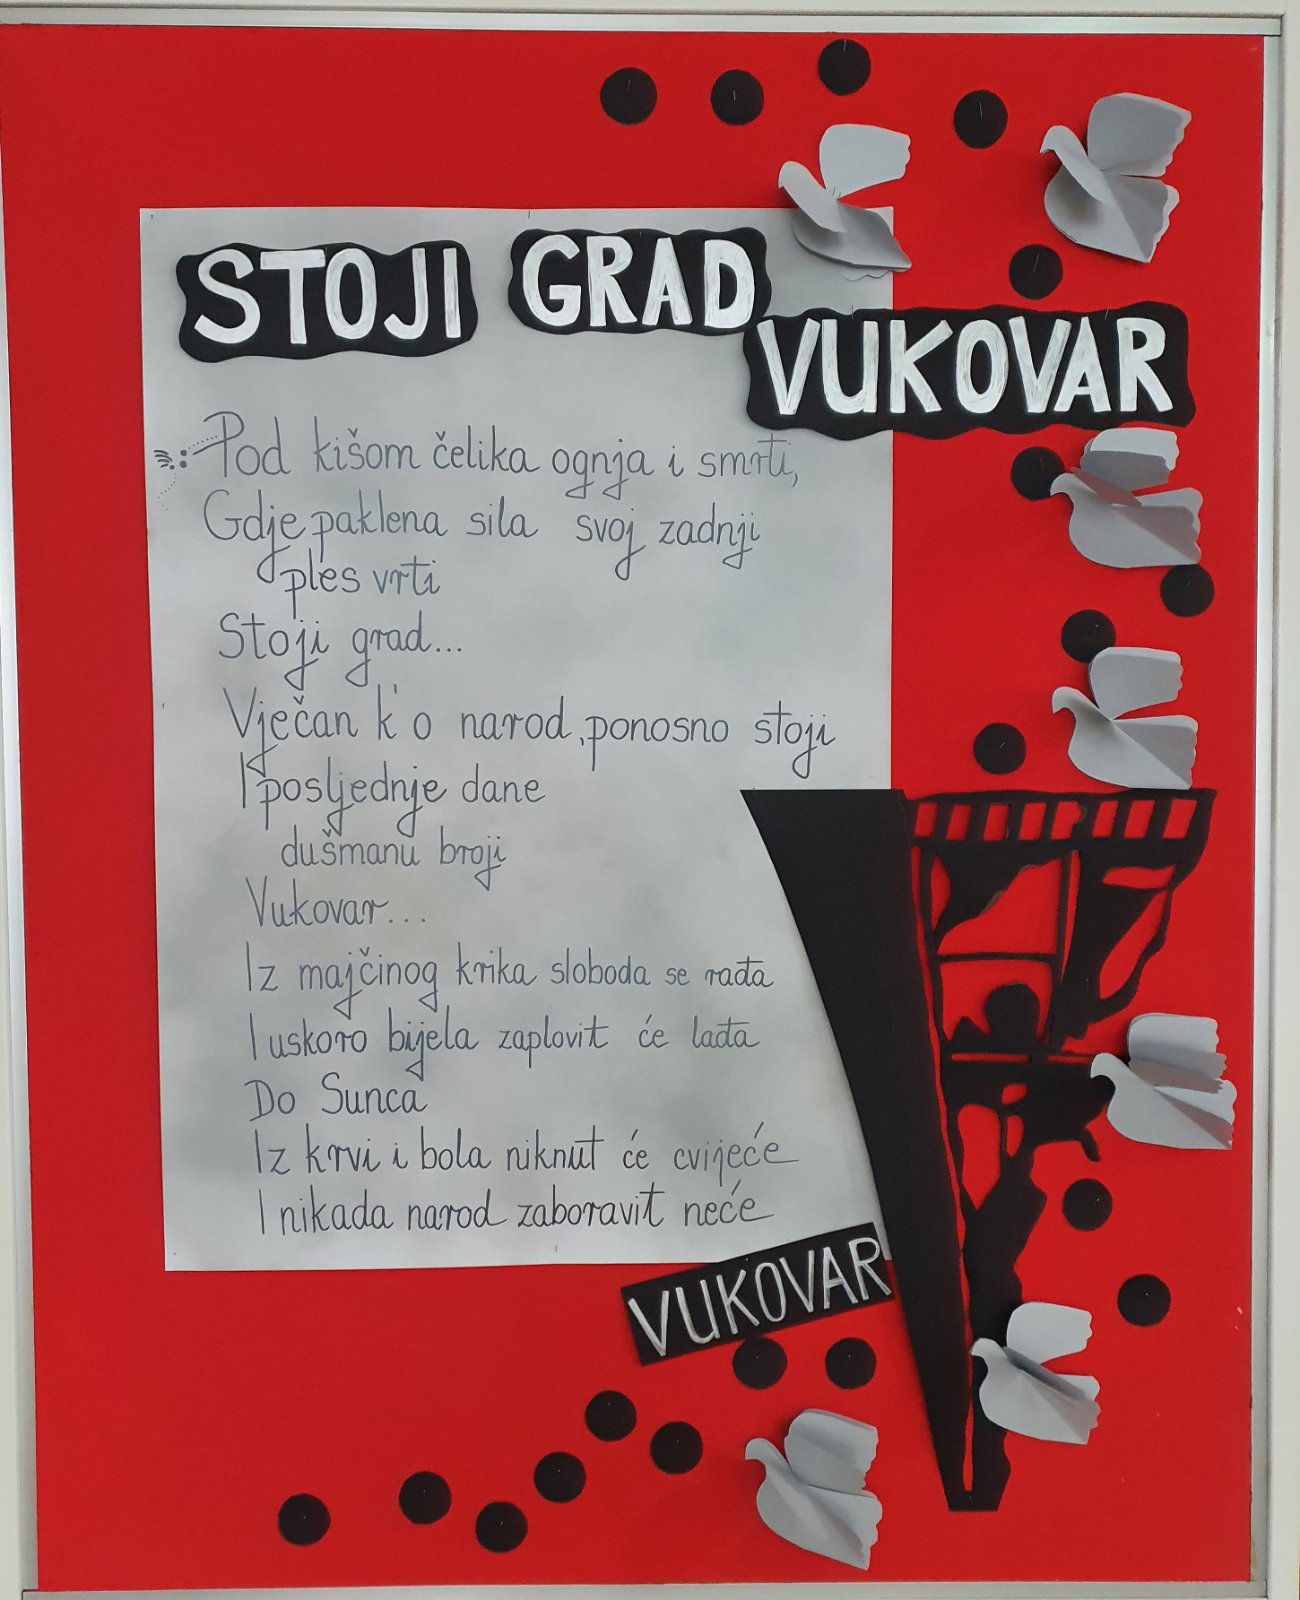 STOJI GRAD
VUKOVAR
Pod kišom čelika ognja i smrti,
Gdje paklena sila svoj zadnji
ples vrti
Stoji grad...
Vječan k'o narod, ponosno stoji
I posljednje dane
dušmanu broji
Vukovar...
Iz majčinog krika sloboda se rađa
I uskoro bijela zaplovit će lađa
Do Sunca
Iz krvi i bola niknut će cvijeće
I nikada narod zaboravit neće
VUKOVAR